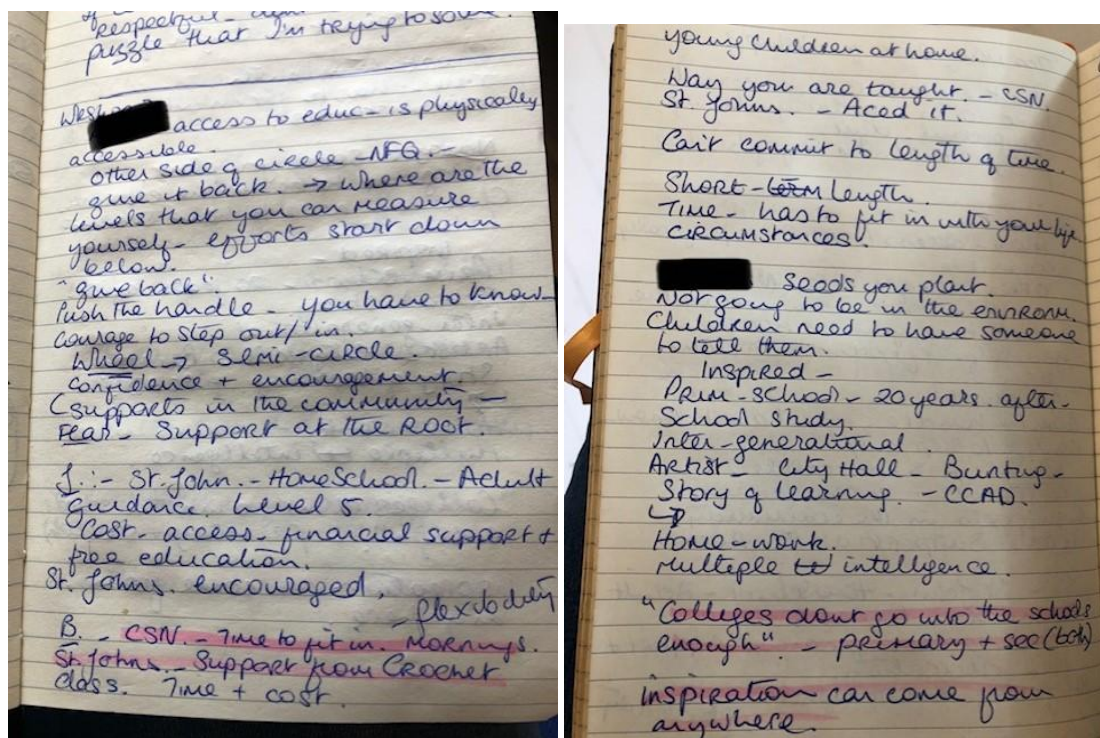 respectful
puzzle that I'm trying to solve.
access to educ - is physically
accessible.
other side of circle - NFQ. -
give it back. → where are the
levels that you can measure
yourself - efforts start down
below.
"give back".
Push the handle - you have to know -
courage to step out/in.
Wheel → semi-circle.
Confidence + encouragement.
(supports in the community -
Fear - Support at the ROOT.
J :- St. John. - HomeSchool. - Adult
guidance. Level 5.
Cost - access - financial support +
free education.
St. Johns. encouraged.
- flexibility
B. - CSN. - Time to fit in. Mornings.
St. Johns - Support from Crochet
class. Time + cost.
young children at home.
Way you are taught. - CSN
St. Johns. - Aced it.
Can't commit to length of time.
Short - term length.
Time - has to fit in with your life
circumstances.
Seeds you plant.
Not going to be in the environm.
Children need to have someone
to tell them.
Inspired -
Prim - school - 20 years after -
School study.
Inter-generational.
Artist - City Hall - Bunting -
Story of learning. - CCAD.
↳
Home-work.
multiple intelligence.
"Colleges dont go into the schools
enough" - primary + sec (both)
inspiration can come from
anywhere.